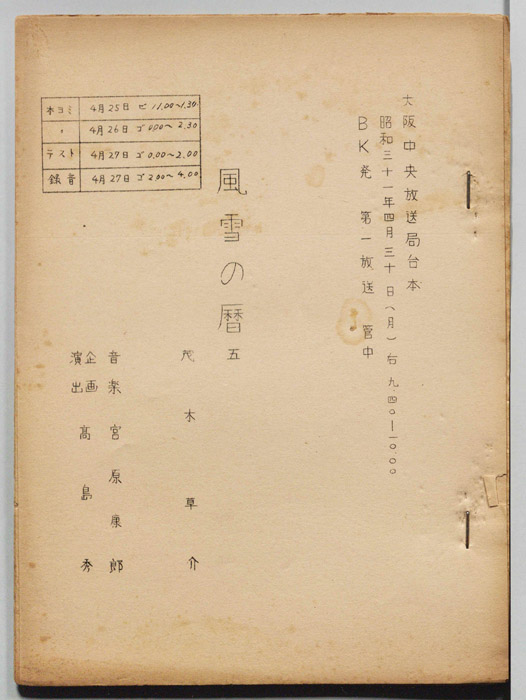 大阪中央放送局台本
昭和三十一年四月三十日(月)右九.四〇―一〇.〇〇
BK発 第一放送 管中
風雪の暦 五
茂木草介
音楽 宮原康郎
企画
演出 高島秀
本ヨミ 4月25日 ヒ 11.00〜1.30
〃 4月26日 ゴ 0.00〜2.30
テスト 4月27日 ゴ 0.00〜2.00
録音 4月27日 ゴ 2.00〜4.00